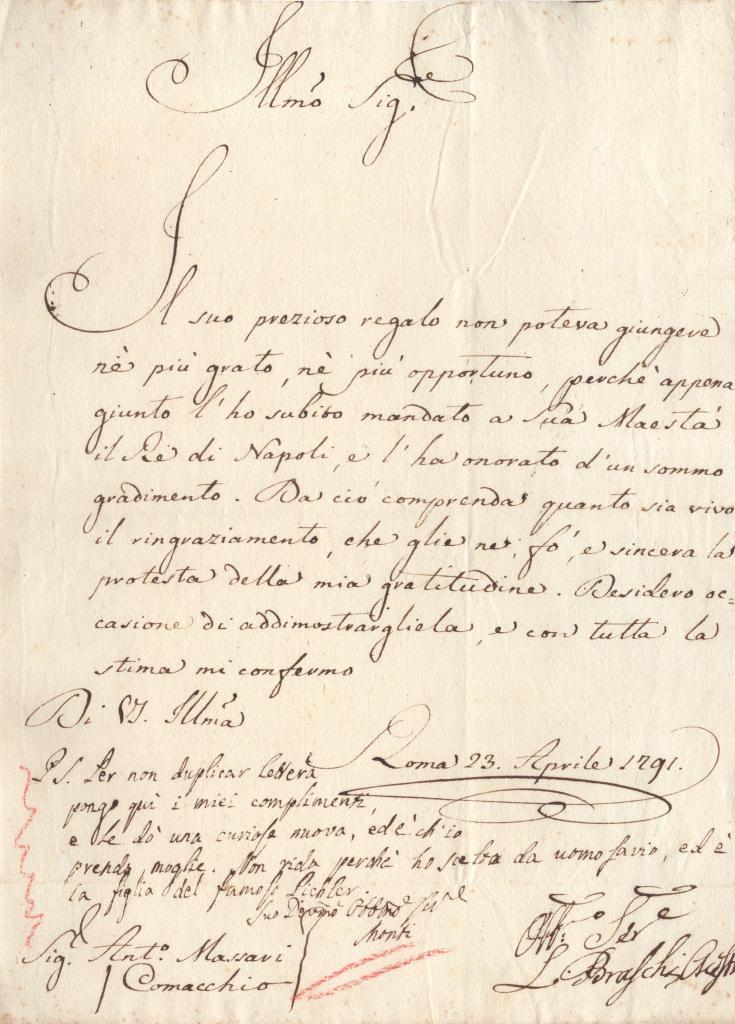 Illmo Sig.re
Il suo prezioso regalo non poteva giungere
nè più grato, nè più opportuno, perchè appena
giunto l'ho subito mandato a Sua Maestà
il Rè di Napoli, e l'ha onorato d'un sommo
gradimento. Da ciò comprenda quanto sia vivo
il ringraziamento, che glie ne fò, e sincera la
protesta della mia gratitudine. Desidero oc=
casione di addimostrargliela, e con tutta la
stima mi confermo
Di V.S. Illma
Roma 23. Aprile 1791.
P.S. Per non duplicar lettera
pongo quì i miei complimenti,
e le dò una curiosa nuova, ed è ch'io
prendo moglie. Non rida perchè ho scelta da uomo savio, ed è
la figlia del famoso Pichler.
Suo Devmo Obbmo Ser.e
Monti
Sig. Ant.o Massari
Comacchio
Aff.mo Ser.e
L. Braschi Onesti